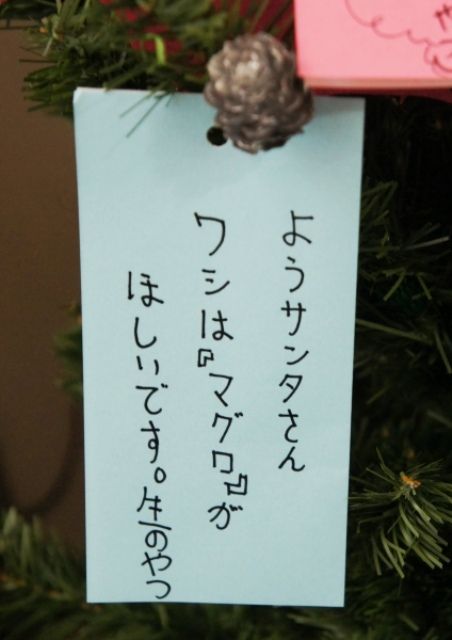 ようサンタさん
ワシは『マグロ』が
ほしいです。生のやつ